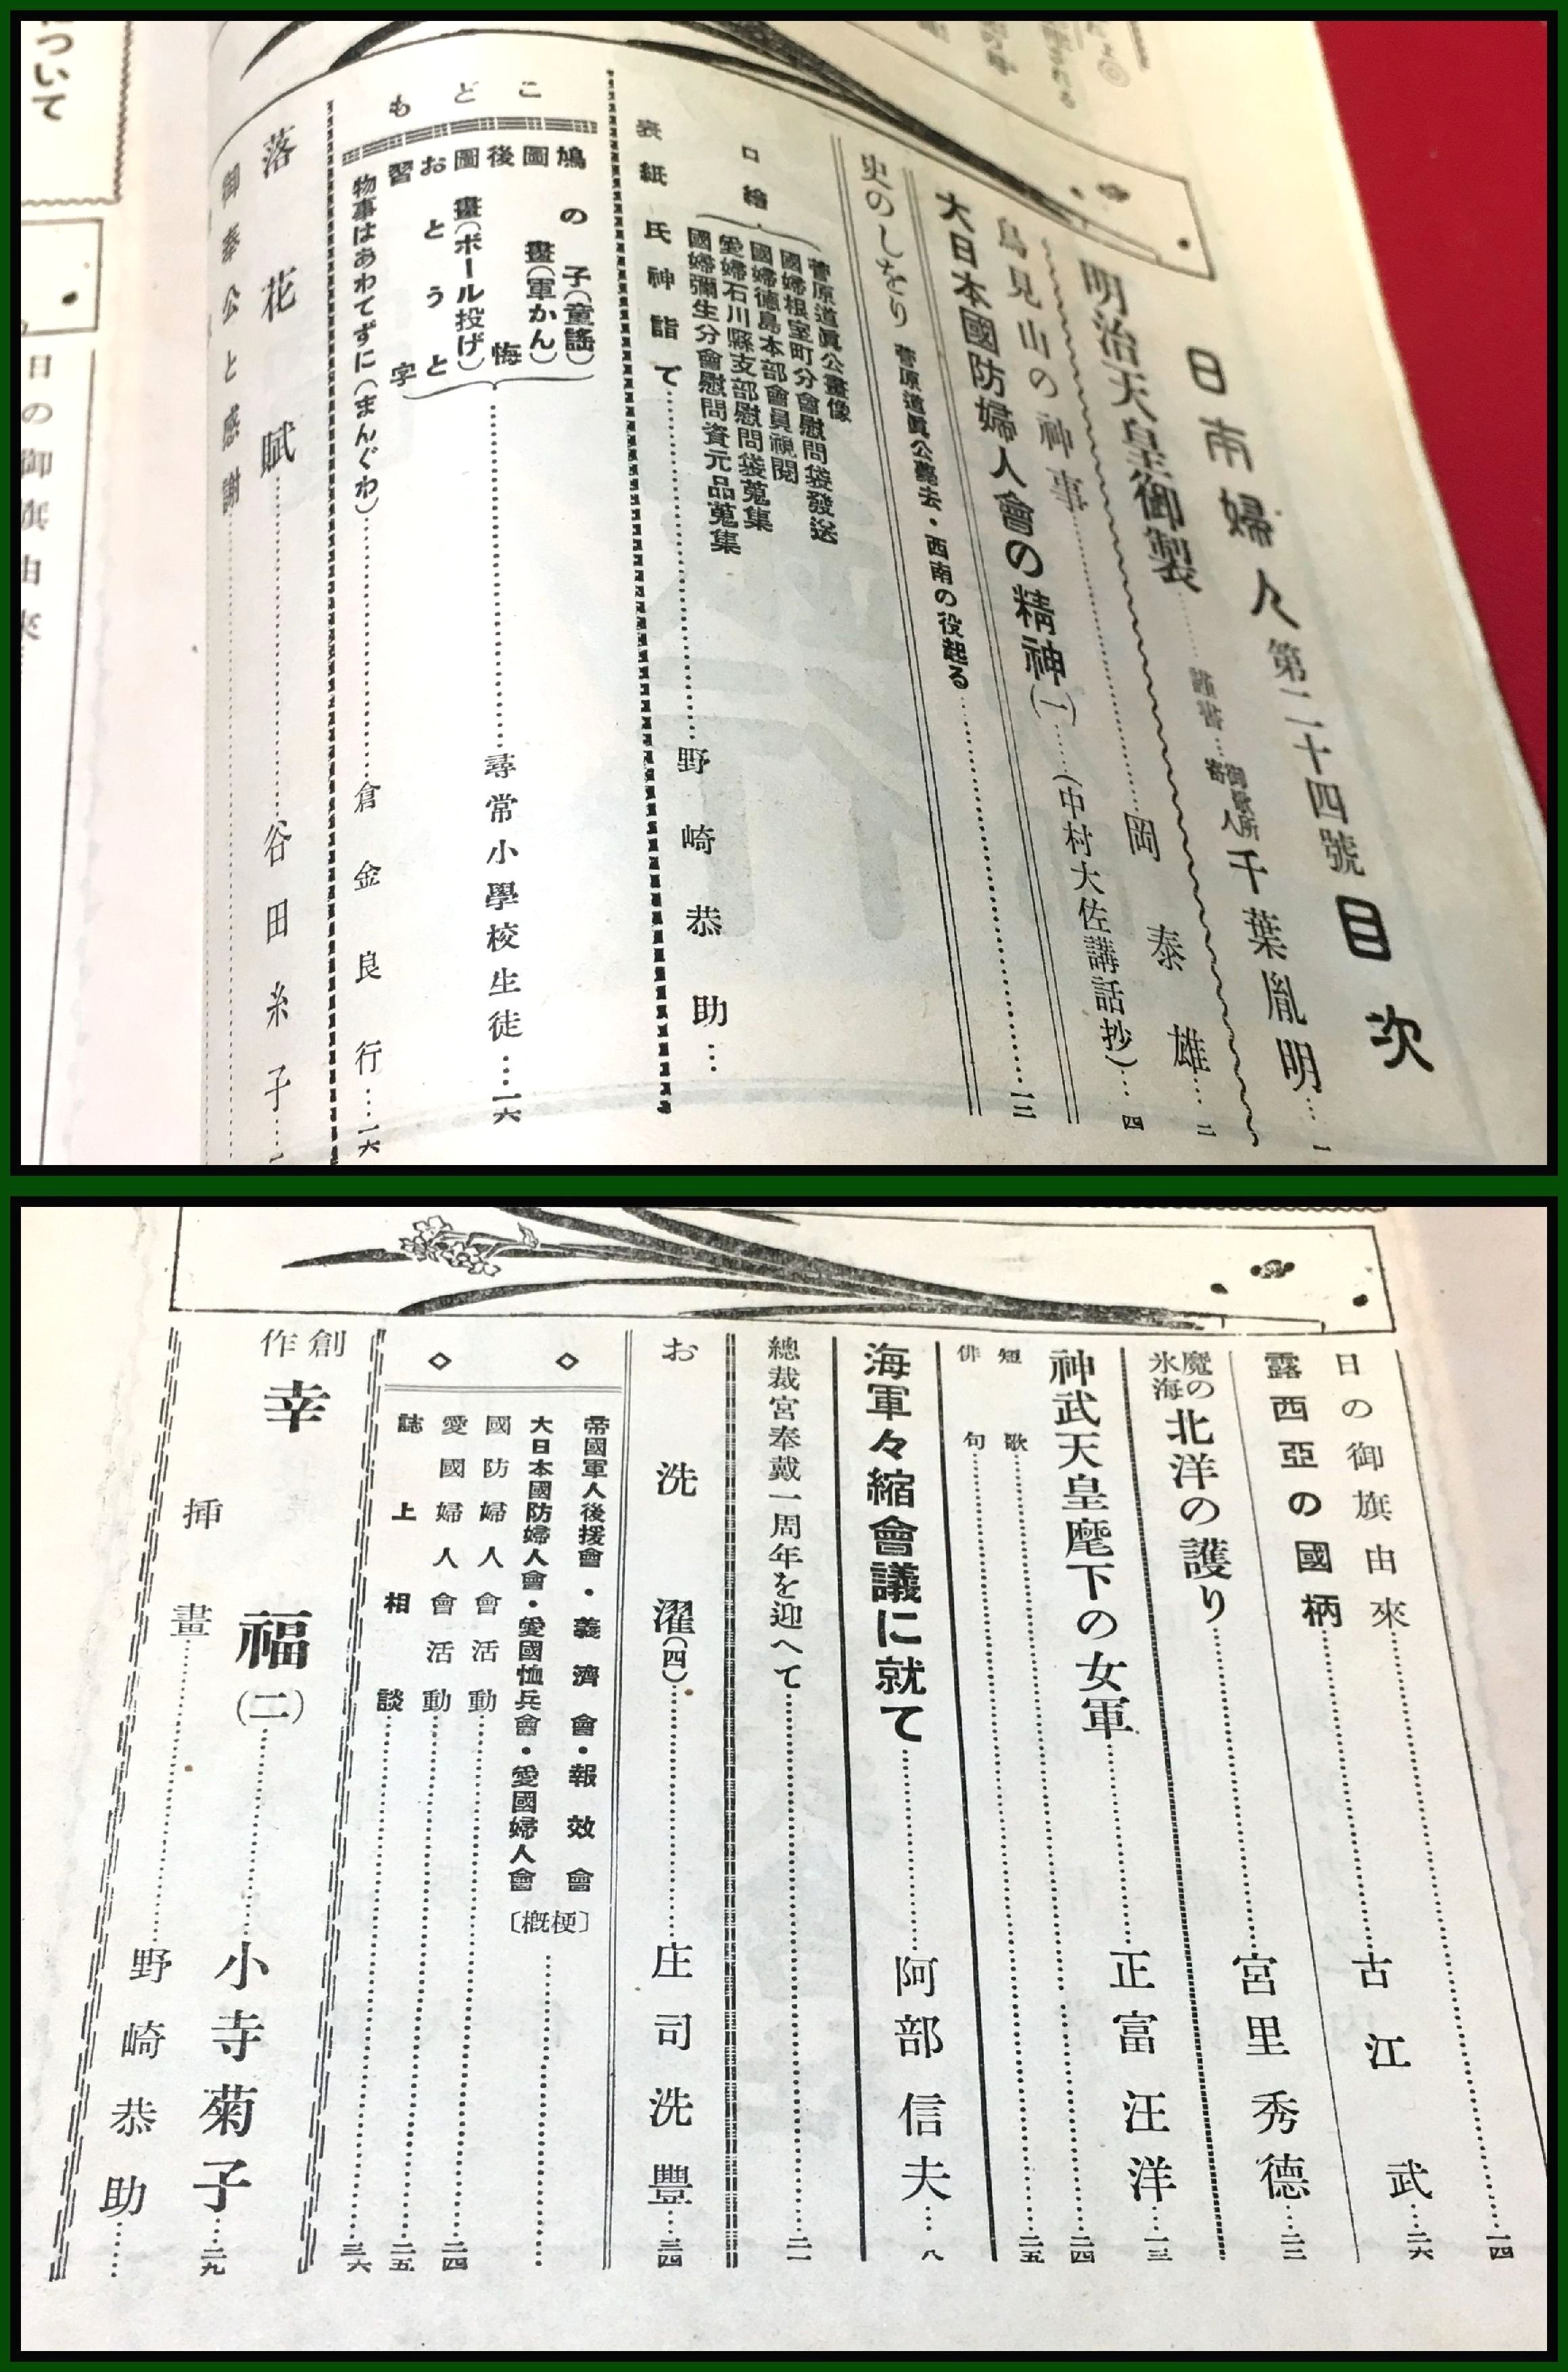 日本婦人 第二十四號 目次
明治天皇御製……謹書…御歌所寄人 千葉胤明…一
鳥見山の神事……岡泰雄…二
大日本國防婦人會の精神(一)…(中村大佐講話抄)…四
史のしをり 菅原道眞公薨去・西南の役起る……一二
口繪
菅原道眞公畫像
國婦根室町分會慰問袋發送
國婦德島本部會員視閲
愛婦石川縣支部慰問袋蒐集
國婦彌生分會慰問資元品蒐集
表紙 氏神詣で……野崎恭助…
こども
鳩の子(童謠)
圖畫(軍かん)
後悔
圖畫(ボール投げ)
おとうと
習字
……尋常小學校生徒…一六
物事はあわてずに(まんぐわ)……倉金良行…一六
落花賦……谷田糸子…
御奉公と感謝……
について
日の御旗由來
日の御旗由來……一四
露西亞の國柄……古江武…二六
魔の氷海 北洋の護り……宮里秀德…二二
神武天皇麾下の女軍……正富汪洋…一三
短歌……二四
俳句……二五
海軍々縮會議に就て……阿部信夫…八
總裁宮奉戴一周年を迎へて……二一
お洗濯(四)……庄司洗豐…三四
◇ ◇
帝國軍人後援會・義濟會・報效會
大日本國防婦人會・愛國恤兵會・愛國婦人會
〔梗概〕……
國防婦人會活動……二四
愛國婦人會活動……二五
誌上相談……三六
創作 幸福(二)……小寺菊子…二九
挿畫……野崎恭助……